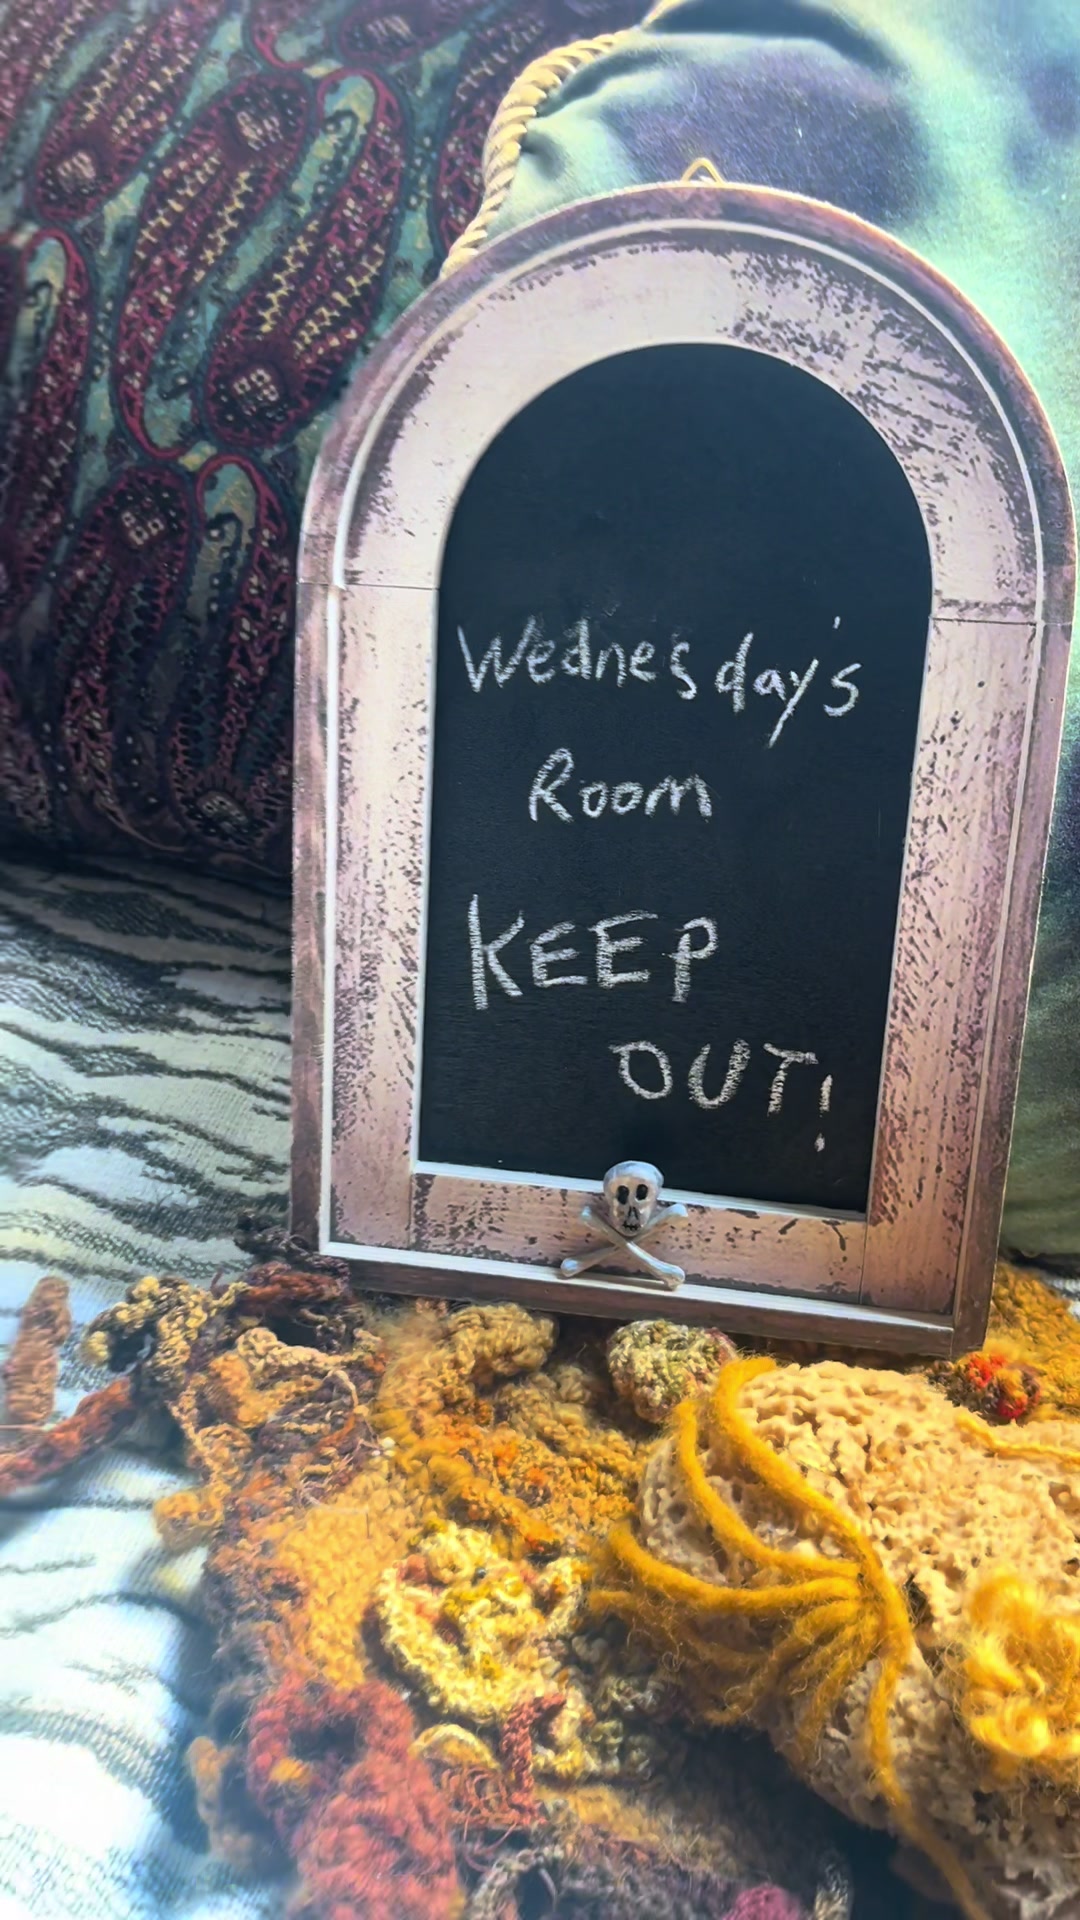 Wednesday's
Room
KEEP
OUT!